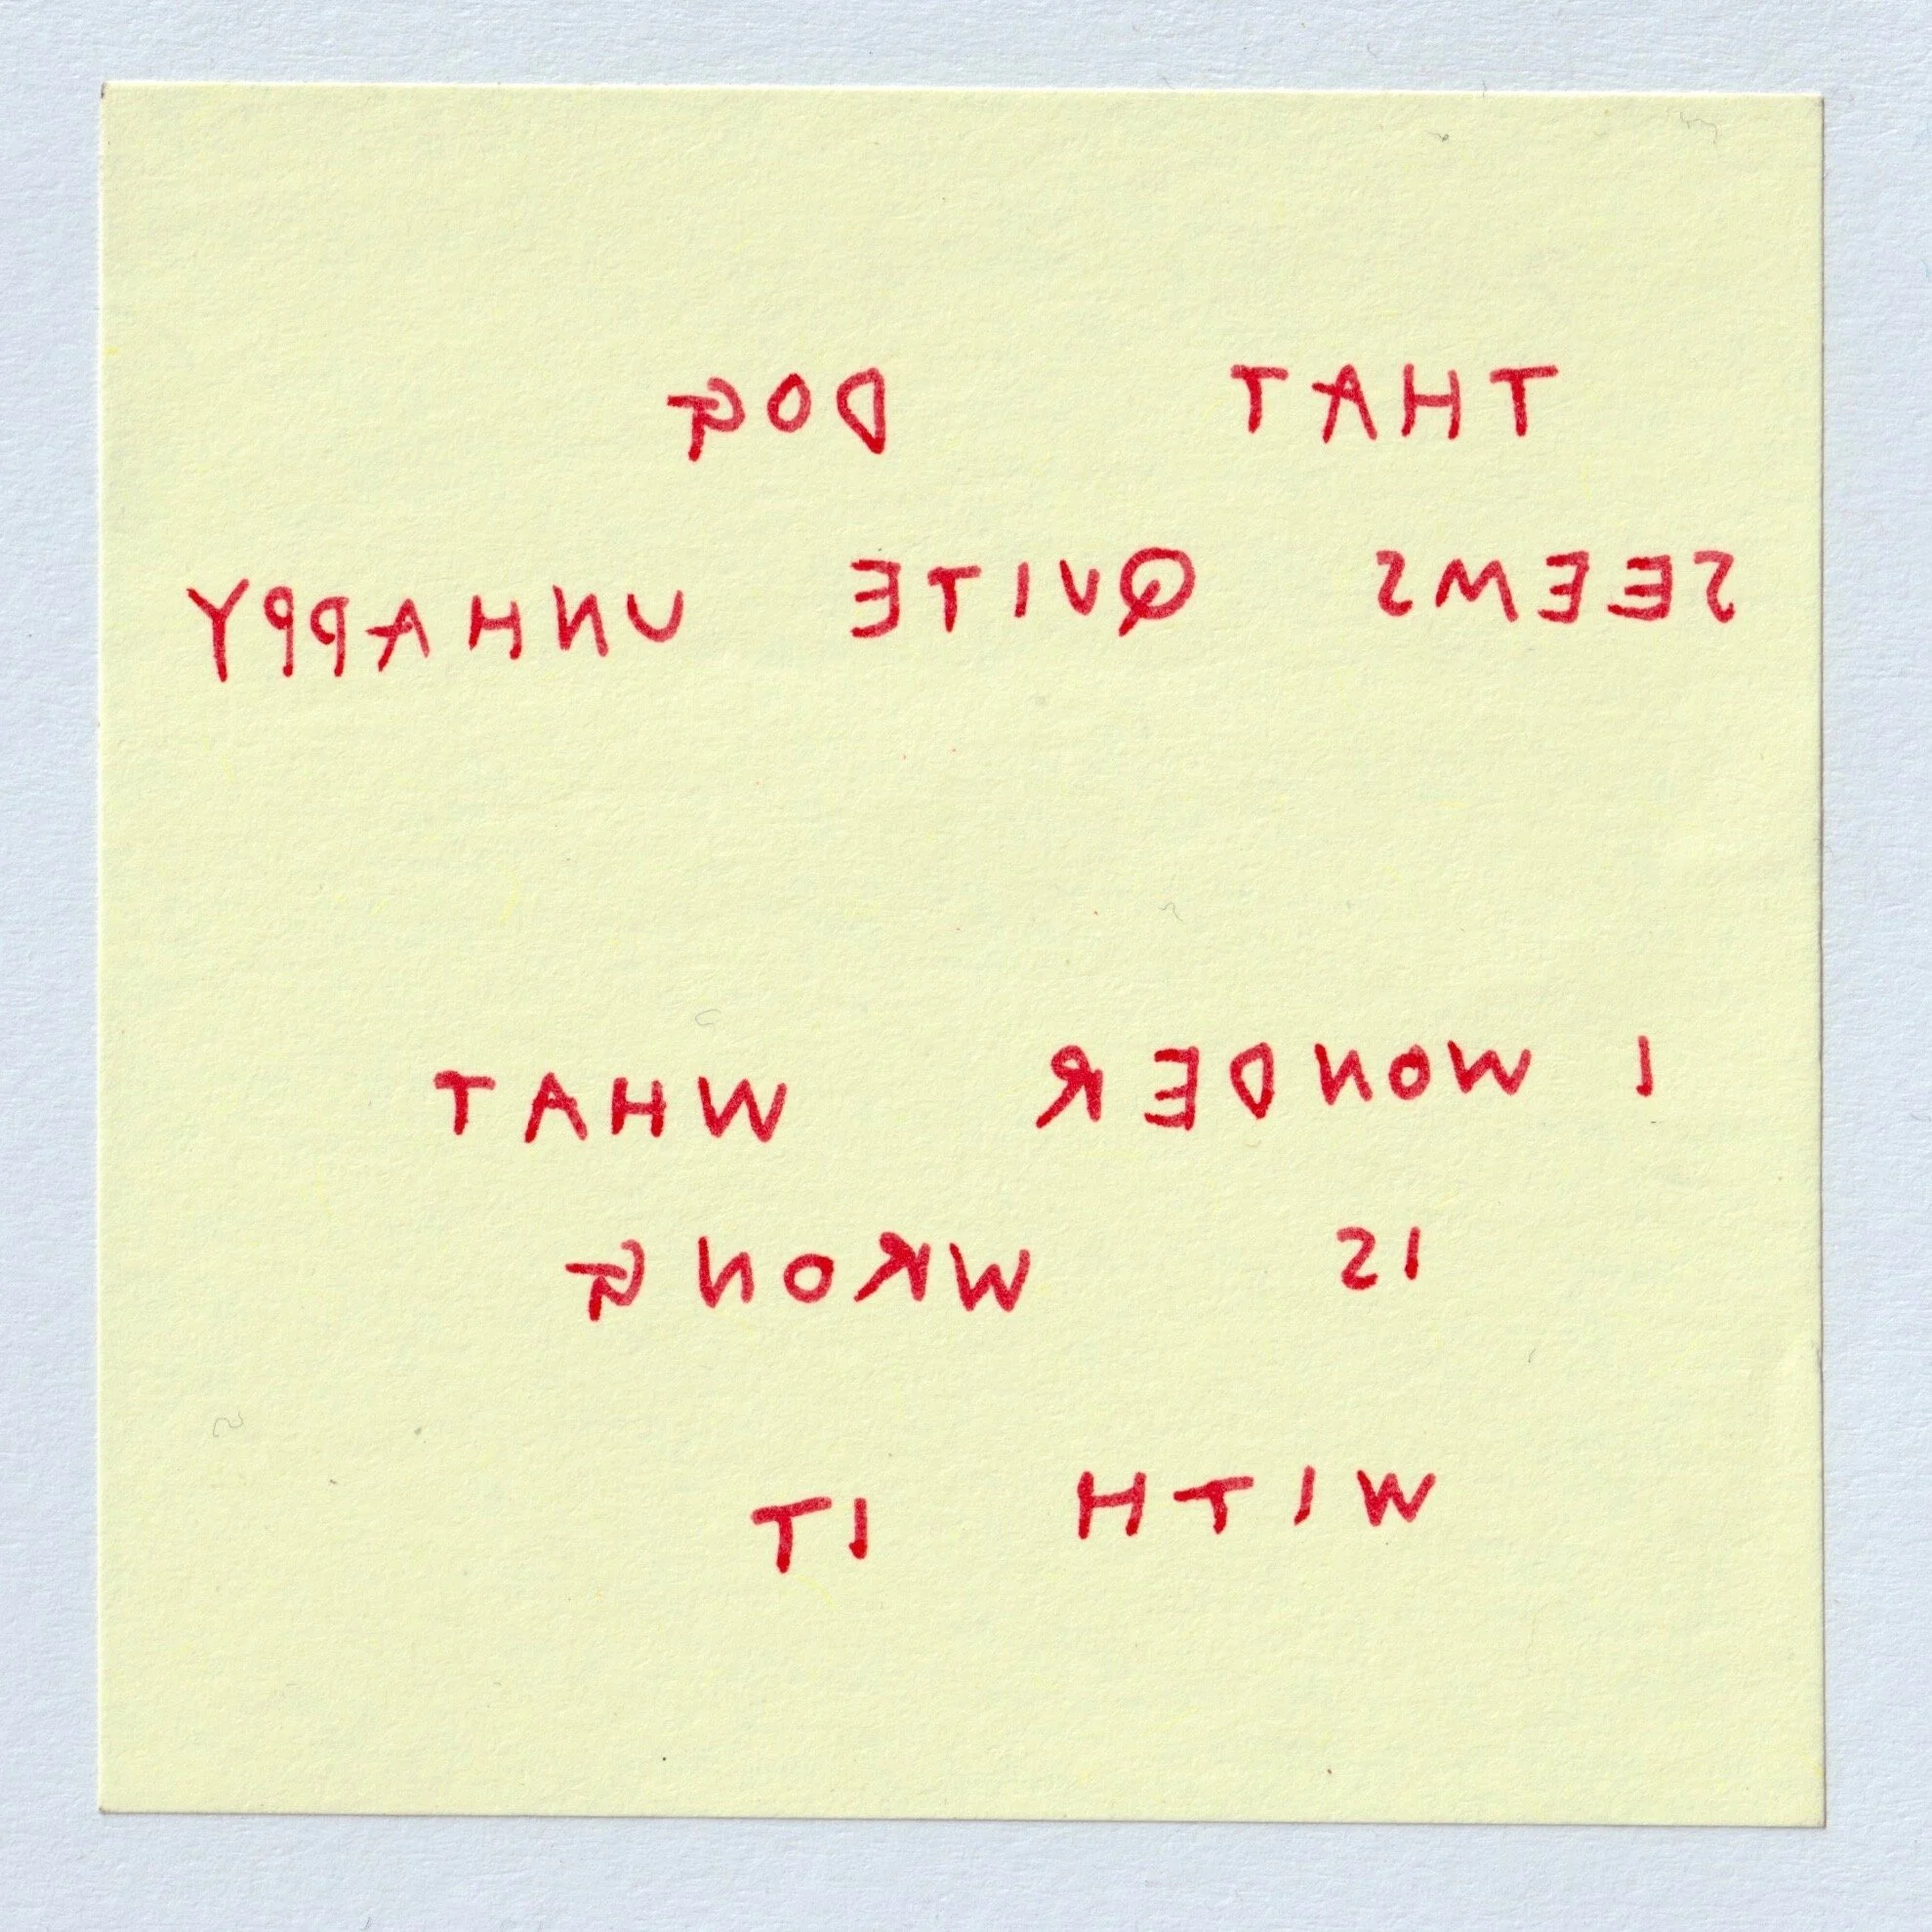 THAT DOG
SEEMS QUITE UNHAPPY
I WONDER WHAT
IS WRONG
WITH IT